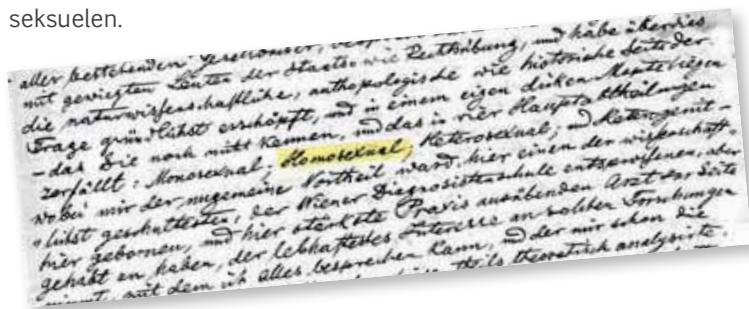 seksuelen.
aller bestehenden
mit gewiegten Leuten der Staats- wie Rechtsübung, und habe überdies
die naturwissenschaftliche, anthropologische wie historische Seite der
Frage gründlichst erschöpft, und in einem eigen dicken
– das Sie noch nicht kennen, und das in vier Hauptabtheilungen
zerfällt: Monosexual; Homosexual; Heterosexual; und Heterogenit –
wobei mir der ungemeine Vortheil ward, hier einen der wissenschaft-
lichst geschultesten, der Wiener Diagnostikerschule entsprossenen, aber
hier gebornen, und hier stärkste Praxis ausübenden Arzt zur Seite
gehabt zu haben, der lebhaftestes Interesse an solchen Forschungen
nimmt, mit dem ich alles besprechen kann, und der mir schon die
theils theoretisch analysirte,